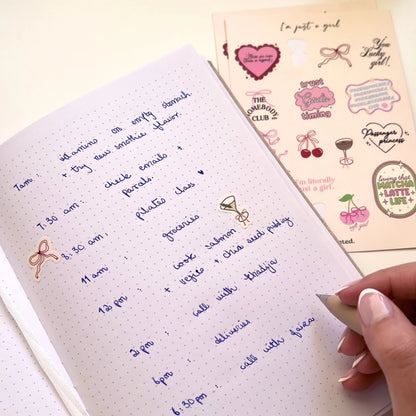 7am : vitamins on empty stomach
+ try new smoothie flavor.
7:30 am : check emails +
parcels.
8:30 am : pilates class ♥
11 am : groceries
12 pm : cook salmon
+ vegie + chia seed pudding
2 pm : call with thadja
6pm : deliveries
6:30 pm : call with faiza
I'm just a girl
You
Lucky
girl!
THE
SOMEBODY
CLUB
trust
God's
timing
Passenger
princess
I'm literally
just a girl.
living that
MATCHA
LATTE
LIFE
girl